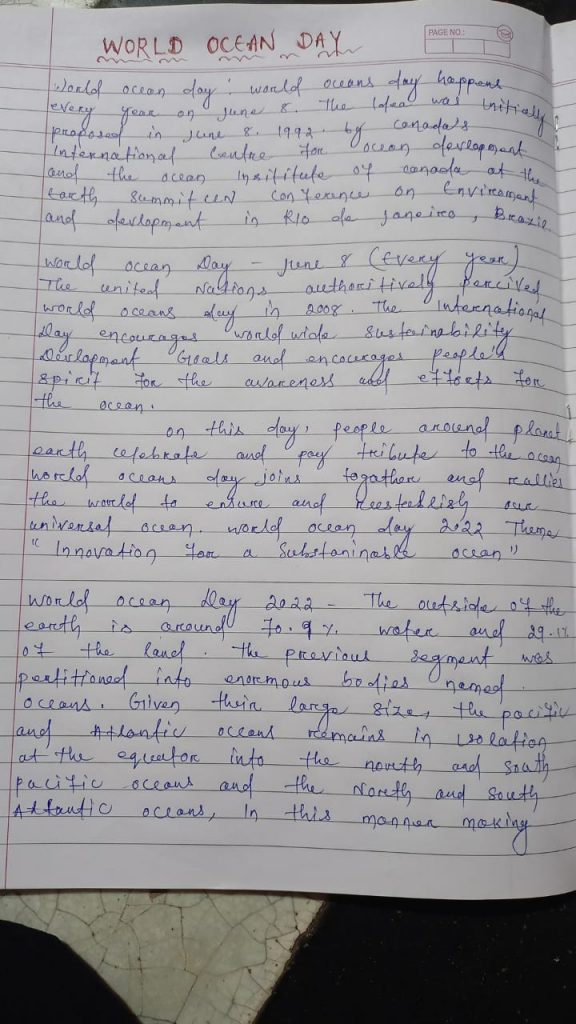 PAGE NO.:
WORLD OCEAN DAY
World ocean day : world oceans day happens
every year on June 8. The Idea was initially
proposed in June 8. 1992. by Canada's
International Centre for ocean development
and the ocean Institute of canada at the
Earth Summit UN conference on Enviroment
and development in RIO de Janeiro, Brazil.
World ocean Day - June 8 (Every year)
The united Nations authoritively percived
world oceans day in 2008. The International
Day encourages world wide sustainability
Development Goals and encourages people's
spirit for the awareness and efforts for
the ocean.
on this day, people around planet
earth celebrate and pay tribute to the ocean
world oceans day joins togather and rallies
the world to ensure and reestablish our
universal ocean. world ocean day 2022 Theme
" Innovation for a Substaninable ocean"
World ocean Day 2022 - The outside of the
earth is around 70.9 %. water and 29.1%
of the land. The previous segment was
pertitioned into enormous bodies named
oceans. Given their large size, the pacific
and Atlantic oceans remains in isolation
at the equator into the north and south
pacific oceans and the North and south
Atlantic oceans, In this manner making